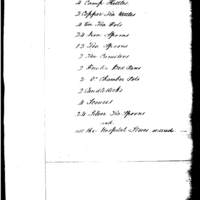 4 Camp Kettles
2 Copper Tea Kettles
4 Tin Tea Pots
24 Iron Spoons
12 Tin Spoons
2 Tin Canisters
2 Pewter Bed Pans
2 do Chamber Pots
3 Candlesticks
4 
24 Silver Tea Spoons
and
all the Hospital Stores